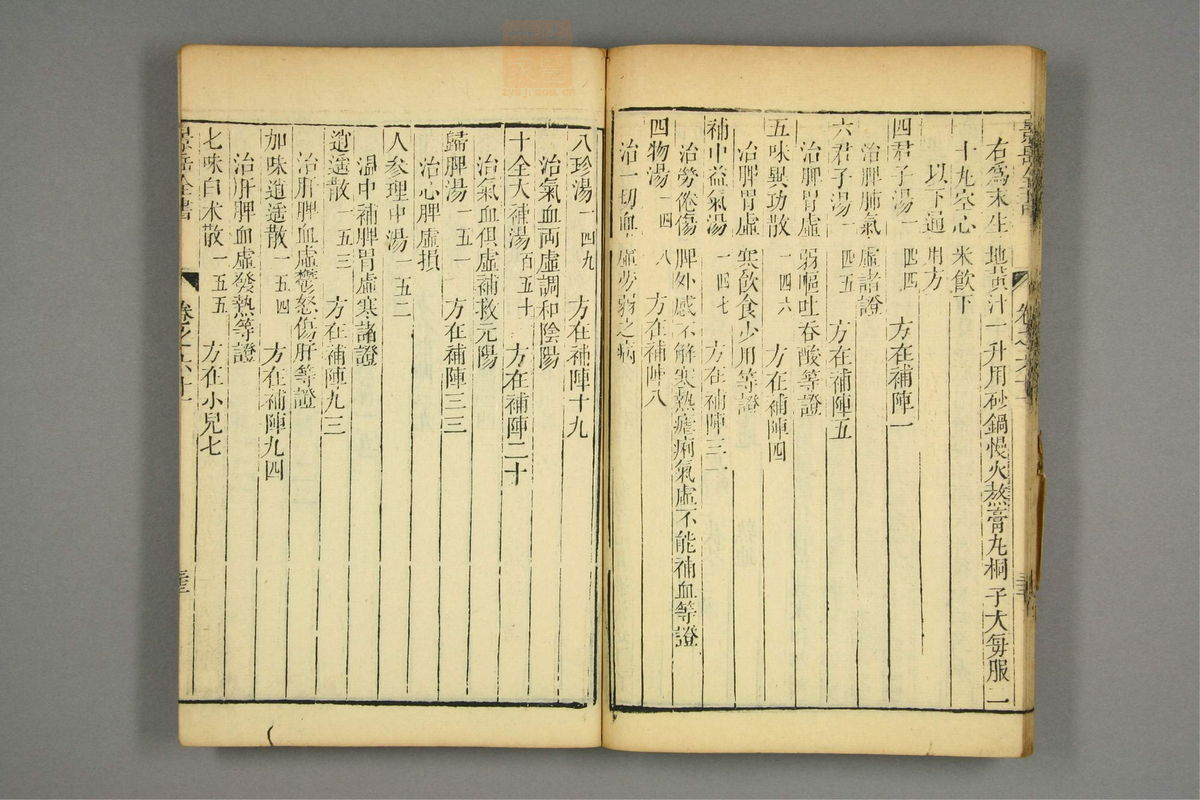 右為末生地黃汁一升用砂鍋慢火熬膏丸桐子大每服二
十丸空心米飲下
以下通用方
四君子湯一四四 方在補陣一
治脾肺氣虛諸證
六君子湯一四五 方在補陣五
治脾胃虛弱嘔吐吞酸等證
五味異功散一四六 方在補陣四
治脾胃虛寒飲食少用等證
補中益氣湯一四七 方在補陣三一
治勞倦傷脾外感不解寒熱瘧痢氣虛不能補血等證
四物湯一四八 方在補陣八
治一切血虛勞弱之病
八珍湯一四九 方在補陣十九
治氣血兩虛調和陰陽
十全大補湯百五十 方在補陣二十
治氣血俱虛補救元陽
歸脾湯一五一 方在補陣三三
治心脾虛損
人參理中湯一五二
溫中補脾胃虛寒諸證
逍遙散一五三 方在補陣九三
治肝脾血虛鬱怒傷肝等證
加味逍遙散一五四 方在補陣九四
治肝脾血虛發熱等證
七味白术散一五五 方在小兒七
景岳全書 卷之六十一